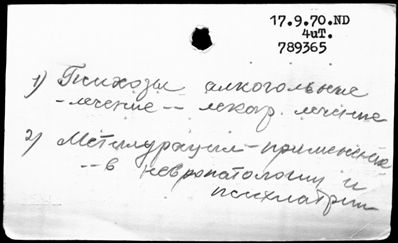 17.9.70.ND
4чТ.
789365
1) Психозы алкогольные
-лечение -- лекар. лечение
2) Метилурацил-применение
--в невропатологии и
психиатрии